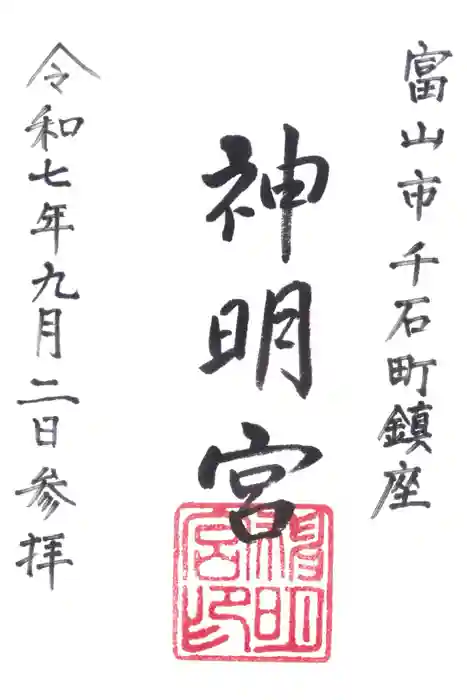 富山市千石町鎮座
神明宮
神明宮印
令和七年九月二日参拝